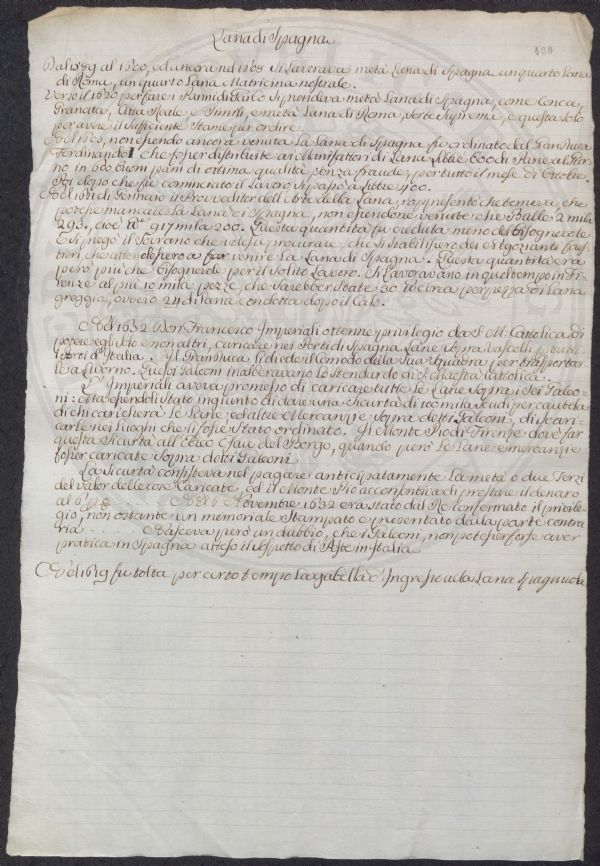 Lana di Spagna
400
Dal 1589 al 1600, ed ancora nel 1608 si Lavorava metà Lana di Spagna, un quarto Lana
di Roma, un quarto Lana Matricina nostrale.
Verso il 1620 per fare i Panni di si prendeva metà Lana di Spagna, come Conca,
Granata, Città Reale, e Simili, e metà Lana di Roma, Sorte Suprema, e questa solo
per avere il sufficiente Stame per ordire.
Nel non essendo ancora venuta La Lana di Spagna fu ordinato dal Gran Duca
Ferdinando I che fosser distribuite ai Manifattori di Lana 600 di Pane al Gior-
no in 600 buoni pani di ottima qualità senza fraude, per tutto il mese di Ottobre.
Poi dopo che fu cominciato il Lavoro si passò a 400.
Nel di Gennaio il Provveditor dell'Arte della Lana, rappresentò che temeva, che
potesse mancare La Lana di Spagna, non essendone venute che Balle 2 mila
293, cioè lb 917 mila 200. Questa quantità fu creduta meno del bisognevole
E si pregò il Sovrano che volesse procurare, che si stabilissero dei Negozianti fores-
tieri, che attendessero a far venire La Lana di Spagna. Questa quantità era
però più che bisognevole per il solito Lavoro. Si Lavoravano in quel tempo in Fi-
renze al più 10 mila pezze, che sarebber state 30 lb circa per pezza di Lana
greggia, ovvero 24 di Lana condotta dopo il Calo.
Nel 1632 Don Francesco Imperiali ottenne privilegio da S. M. Cattolica di
potere egli solo e non altri, caricare nei Porti di Spagna Lane sopra Vascelli p. tutti
i Porti d'Italia. Il Gran Duca li diede il Comodo della Sua Squadra per trasportar-
le a Livorno. Questi Galeoni inalberavano lo Stendardo di Maestà Cattolica.
L'Imperiali aveva promesso di caricare tutte le Lane sopra i Sei Galeo-
ni: Ma essendoli Stato ingiunto di dare una Sicurtà di 100 mila Scudi per cautela
di chi caricherà le Lane, ed altre Mercanzie sopra detti Galeoni, di scari-
carle nei Luoghi che li fosse Stato ordinato. Il Monte Pio di Firenze dové far
questa Sicurtà all'Ebreo quando però Le Lane e mercanzie
fosser caricate sopra detti Galeoni.
La Sicurtà consisteva nel pagare anticipatamente La metà o due Terzi
del valor delle cose Caricate, ed il Monte Pio acconsentiva di prestare il denaro
al 6 p. Nel 6 Novembre 1632 era stato dal Re confermato il privile-
gio, non ostante un memoriale Stampato e presentato dalla parte contra
ria . . . . . Nasceva però un dubbio, che i Galeoni, non potesser forse aver
pratica in Spagna atteso il sospetto di Peste in Italia
Nel 1619 fu tolta per certo tempo La gabella d'Ingresso alla Lana Spagnuola